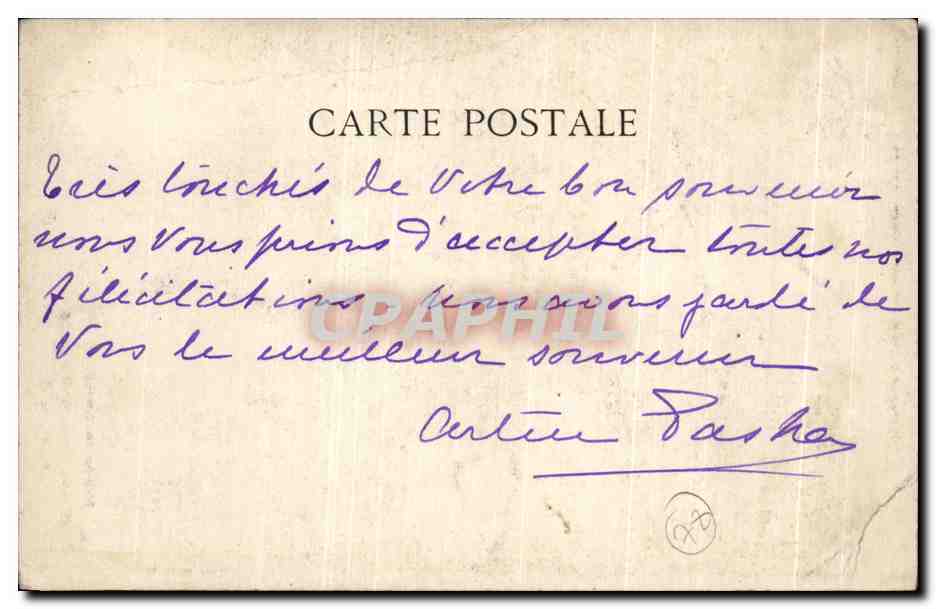 CARTE POSTALE
Très touchés de Votre bon souvenir
nous Vous prions d'accepter toutes nos
félicitations nous avons gardé de
Vous le meilleur souvenir
Pasha
CPAPHIL